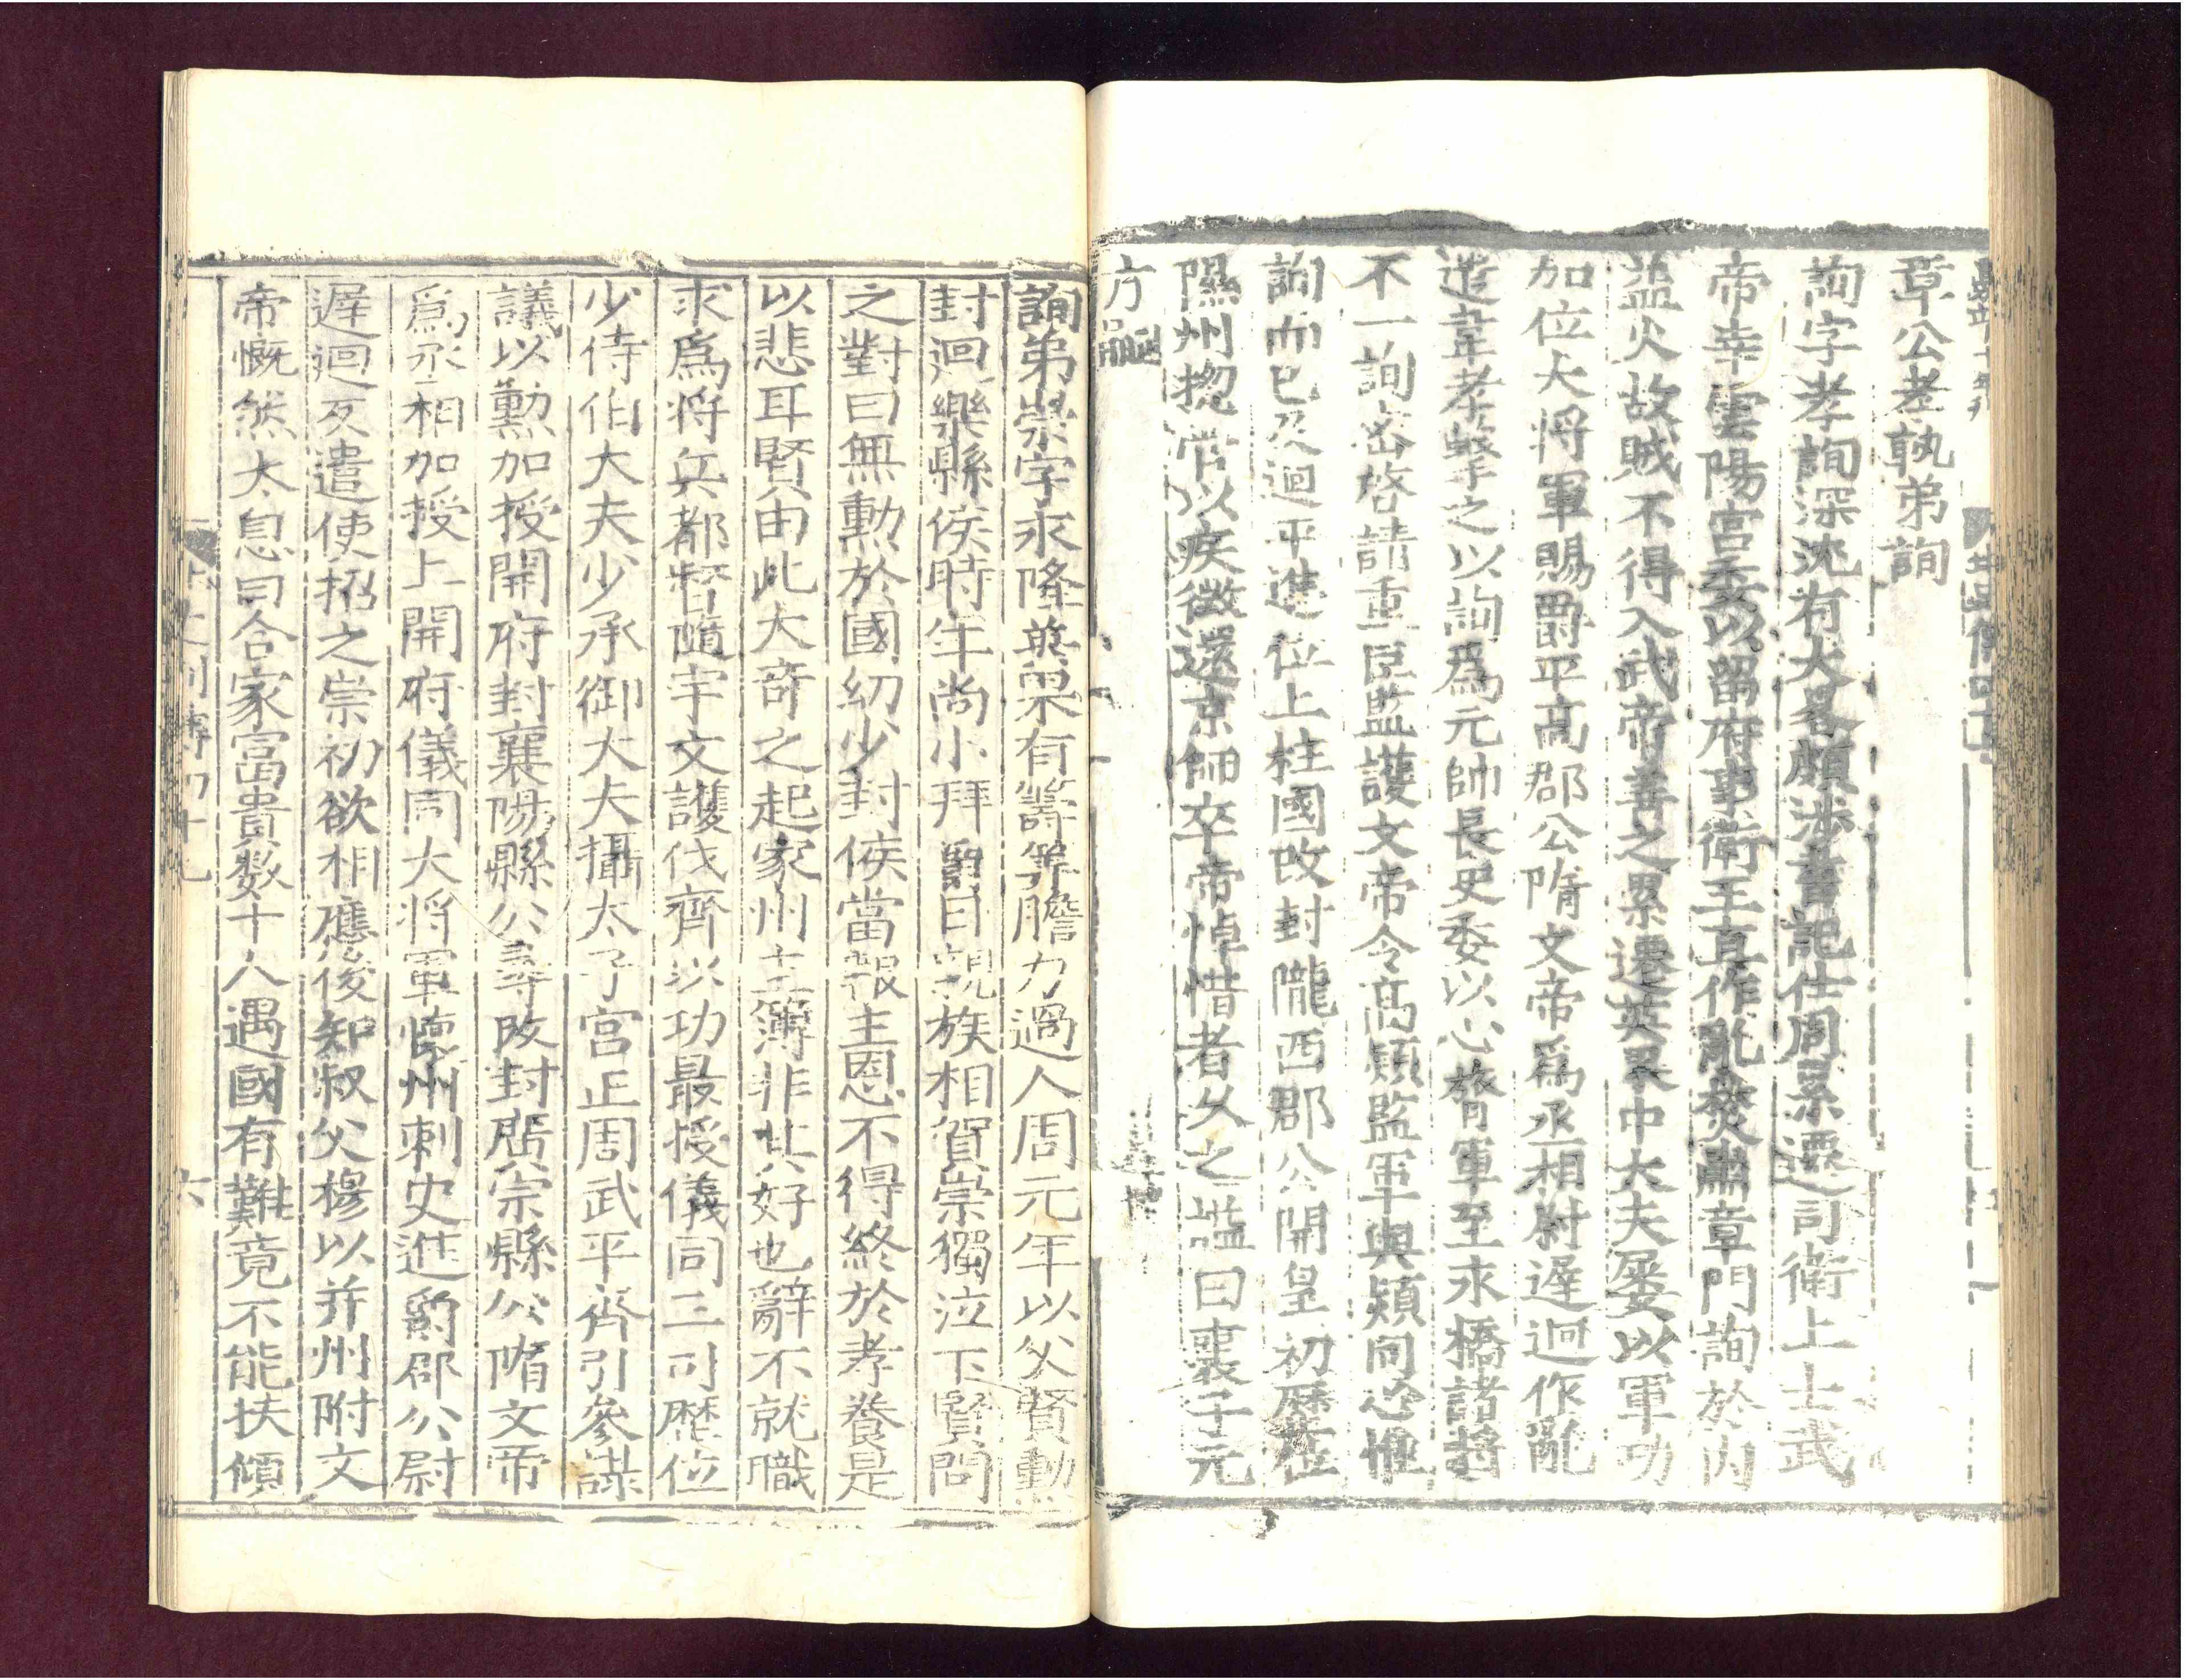 章公孝執弟詢
詢字孝詢深沈有大畧頗涉書記仕周累遷司衛上士武
帝幸雲陽宮委以留府事衛王直作亂焚肅章門詢於內
益火故賊不得入武帝善之累遷英果中大夫屡以軍功
加位大將軍賜爵平高郡公隋文帝爲丞相尉遲迥作亂
遣韋孝寬擊之以詢爲元帥長史委以心膂軍至永橋諸將
不一詢密啓請重臣監護文帝令高熲監軍與熲同心惟
詢而已及迥平進位上柱國改封隴西郡公開皇初歷位
隰州揔管以疾徵還京師卒帝悼惜者久之諡曰襄子元
方嗣
詢弟崇字永隆英果有籌筭膽力過人周元年以父賢勳
封迴樂縣侯時年尚小拜爵日親族相賀崇獨泣下賢問
之對曰無勳於國幼少封侯當報主恩不得終於孝養是
以悲耳賢由此大奇之起家州主簿非其好也辭不就職
求爲將兵都督隨宇文護伐齊以功最授儀同三司歷位
少侍伯大夫少承御大夫攝太子宮正周武平齊引參謀
議以勲加授開府封襄陽縣公尋改封廣宗縣公隋文帝
爲丞相加授上開府儀同大將軍懷州刺史進爵郡公尉
遲迥反遣使招之崇初欲相應後知叔父穆以并州附文
帝慨然太息曰合家富貴数十人遇國有難竟不能扶傾
北史列傳四十七
六